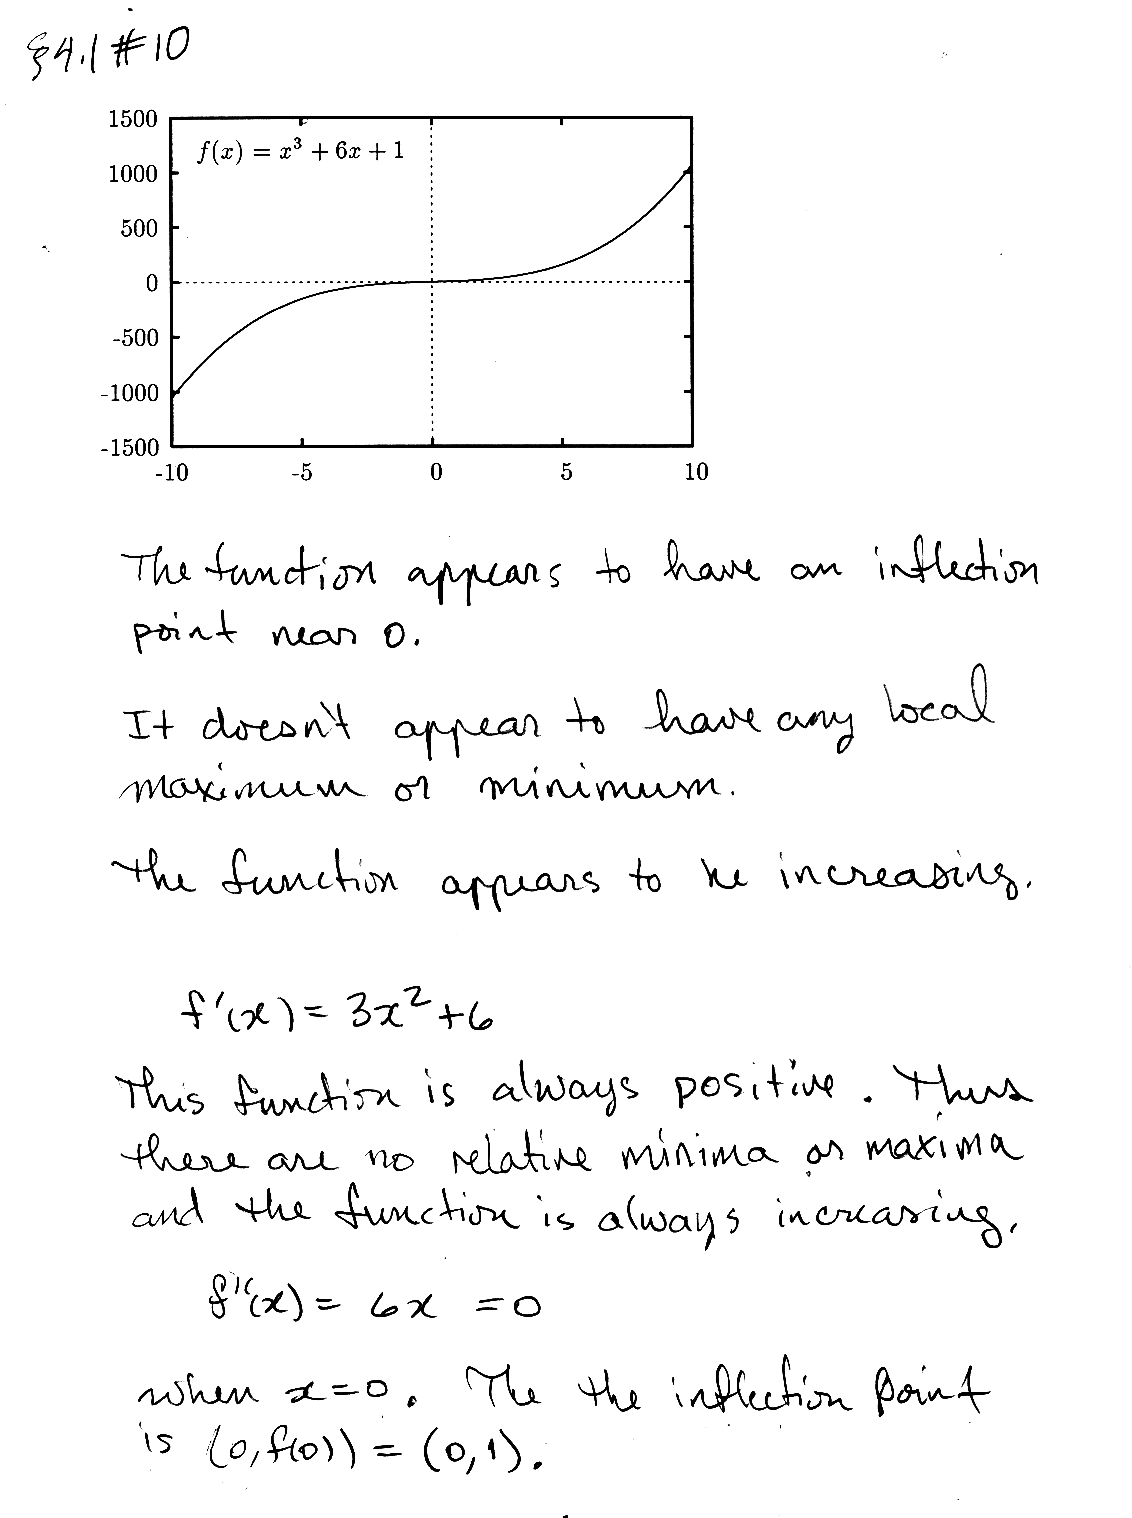 §4.1 #10
1500
f(x) = x³ + 6x + 1
1000
500
0
-500
-1000
-1500
-10 -5 0 5 10
The function appears to have an inflection
point near 0.
It doesn't appear to have any local
maximum or minimum.
the function appears to be increasing.
f'(x) = 3x² + 6
This function is always positive. Thus
there are no relative minima or maxima
and the function is always increasing.
f''(x) = 6x = 0
when x = 0. The the inflection point
is (0, f(0)) = (0, 1).